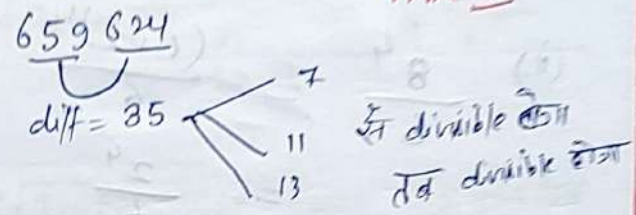 659 624
diff = 35
7
11
13
से divisible होगा
तब divisible होगा